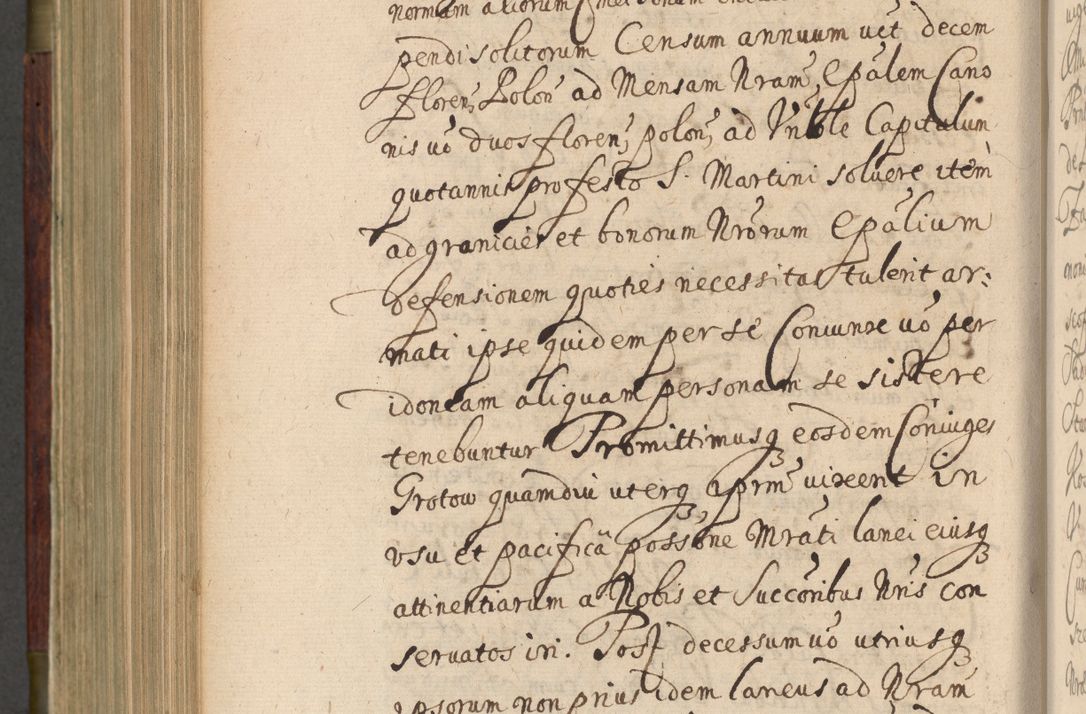 normam aliorum
pendi solitorum Censum annuum uct decem
floren, Polon ad Mensam Nram, Epalem Cano
nis uo duos floren, polon, ad Vnble Capitulum
quotannis pro festo S. Martini soluere item
ad granicies et bonorum Nrorum Epalium
defensionem quoties necessitas tulerit ar:
mati ipse quidem per se Coniunx uo per
idoneam aliquam personam se sistere
tenebuntur Promittimusq eosdem Coniuges
Grotow quamdiu uterq aprm uixerit in
vsu et pacifica possone Mrati lanei eiusq
attinentiarum a Nobis et Succoribus Nris con
seruatos iri. Post decessum uo utriusq
ipsorum non prius idem laneus ad Nram